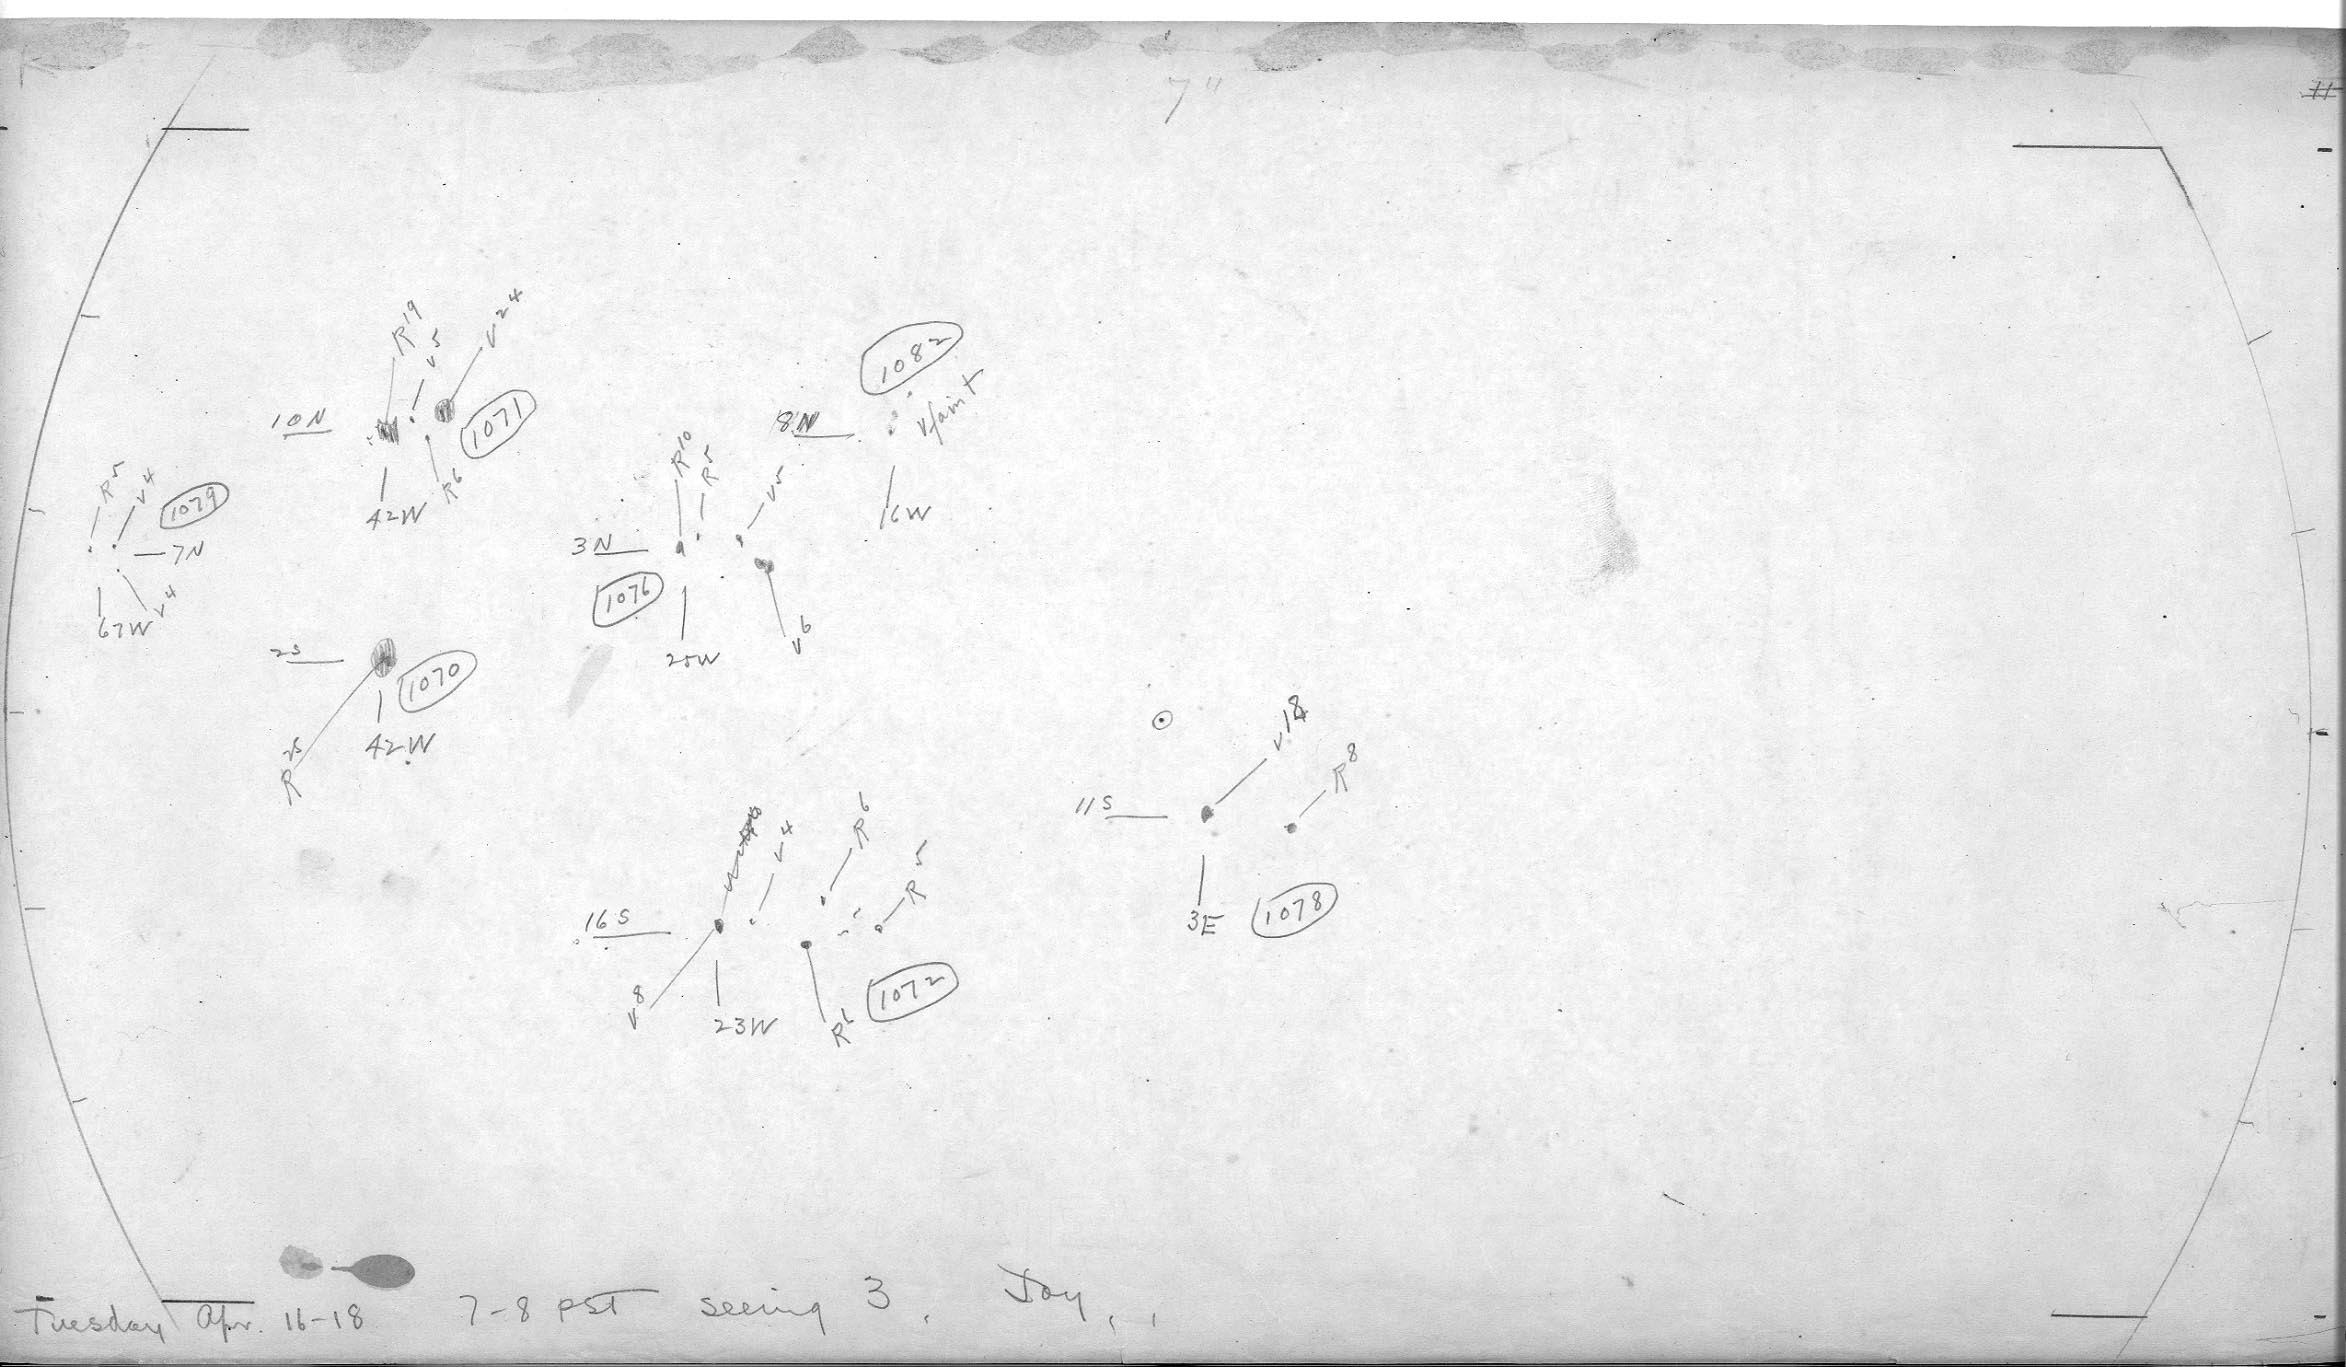 7"
11
R19
V5
V24
10N
1071
42W
R6
1082
8N
V faint
16W
R5
V4
1079
7N
67W
V4
R10
R5
V5
3N
1076
25W
V6
2S
1070
42W
R25
V18
R8
11S
3E
1078
V4
R6
R5
16S
V8
23W
R6
1072
Tuesday Apr. 16-18 7-8 PST seeing 3. Joy